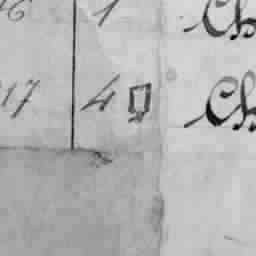 16 1 Ch
17 4 Ch